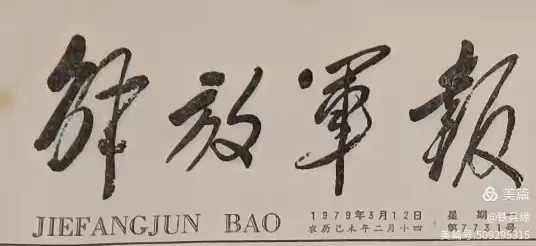 解放軍報
JIEFANGJUN BAO
1979年3月12日 星期
农历己未年二月十四 第7731号
美篇
@铁兵缘
美篇号:509295315